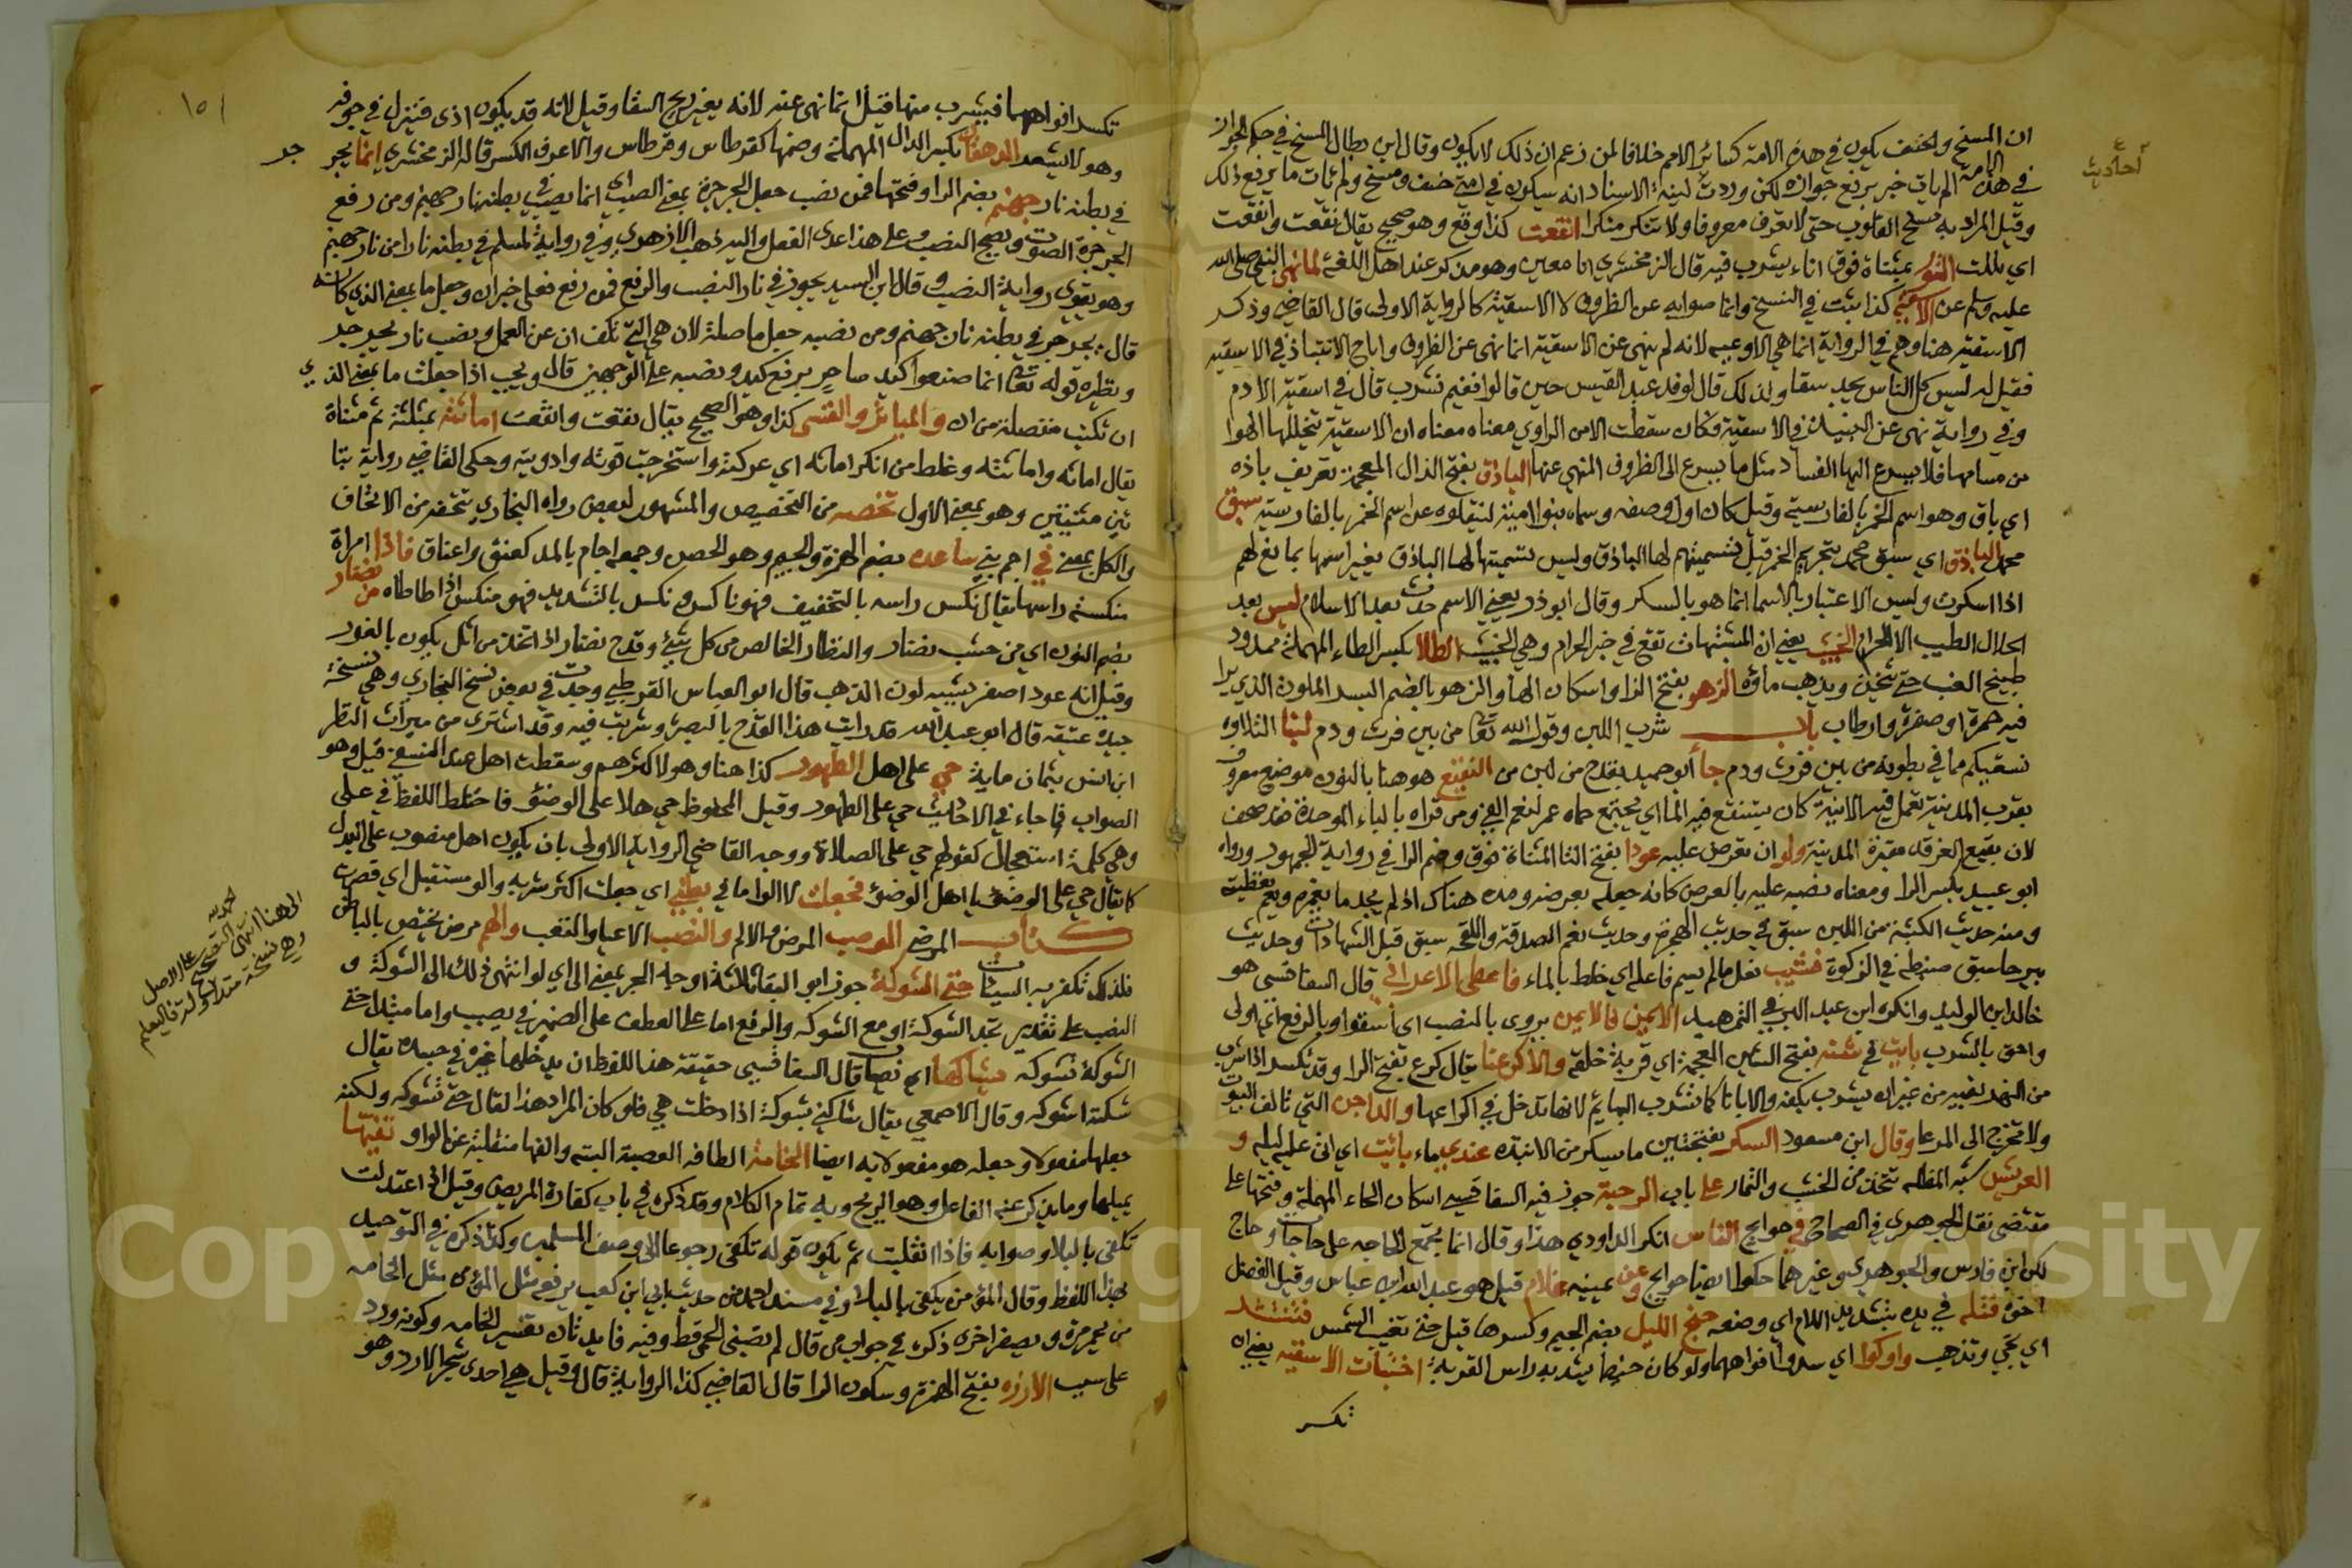 ان المسخ والخسف يكون في هذه الامة كسائر الامم خلافا لمن زعم ان ذلك لا يكون وقال ابن بطال المسخ في حكم الجواز
في هذه الامة ان لم يات خبر يرفع جوازه لكن وردت لينة الاسناد انه سيكون في امتي خسف ومسخ ولم يات ما يرفع ذلك
وقيل المراد به مسخ القلوب حتى لا تعرف معروفا ولا تنكر منكرا انقعت كذا وقع وهو صحيح يقال نقعت وانقعت
اي بللت التور بمثناة فوق اناء يشرب فيه قال الزمخشري انا معين وهو مذكر عند اهل اللغة لما نهى النبي صلى الله
عليه وسلم عن الاسقية كذا ثبت في النسخ وانما صوابه عن الظروف لا الاسقية كالرواية الاولى قال القاضي وذكر
الاسقية هنا وهم في الرواية انما هي الاوعية لانه لم ينهى عن الاسقية انما نهى عن الظروف واباح الانتباذ في الاسقية
فقيل له ليس كل الناس يجد سقا ولذلك قال لوفد عبد القيس حين قالوا ففيم نشرب قال في اسقية الادم
وفي رواية نهى عن النبيذ في الاسقية فكان سقطت الا من الراوي معناه معناه ان الاسقية تتخللها الهوا
من مسامها فلا يسرع اليها الفساد مثل ما يسرع الى الظروف المنهي عنها الباذق بفتح الذال المعجمة تعريف باذه
اي باق وهو اسم الخمر بالفارسية وقيل كان اول وصفه وسماه بنو امية لينقلوه عن اسم الخمر بالفارسية سبق
محمد الباذق اي سبق محمد بتحريم الخمر قبل تسميتهم لها الباذق وليس تسميتها لها الباذق بغير اسمها بنافع لهم
اذا اسكرت وليس الاعتبار بالاسما انما هو بالسكر وقال ابو ذر يعني الاسم حدث بعد الاسلام ليس بعد
الحلال الطيب الا الحرام الخبيث يعني ان المشتبهات تقع في حيز الحرام وهي الخبيث الطلا بكسر الطاء المهملة ممدود
طبيخ العنب حتى يثخن ويذهب ماؤه الزهو بفتح الزا واسكان الها والزهو بالضم البسر الملون الذي بدا
فيه حمرة او صفرة وارطاب باب شرب اللبن وقول الله تعا من بين فرث ودم لبنا التلاوة
نسقيكم مما في بطونه من بين فرث ودم جا ابو حميد بقدح من لبن من النقيع هو هنا بالنون موضع معروف
بقرب المدينة تعمل فيه الانية كان يستنقع فيه الما اي يجتمع حماه عمر لنعم الفي ومن قراه بالباء الموحدة فقد صحف
لان بقيع الغرقد مقبرة المدينة ولو ان تعرض عليه عودا بفتح التا المثناة فوق وضم الرا في رواية الجمهور ورواه
ابو عبيد بكسر الرا ومعناه نصبه عليه بالعرض كانه جعله بعرضه ومده هناك اذا لم يجد ما يخمره ويعم بتغطيته
ومنه حديث الكثبة من اللبن سبق في حديث الهجرة وحديث نعم الصدقة واللقحة سبق قبل الشهادات وحديث
بيرحا سبق ضبطه في الزكوة فشيب فعل ما لم يسم فاعله اي خلط بالماء فاعطى الاعرابي قال السفاقسي هو
خالد بن الوليد وانكره ابن عبد البر في التمهيد الايمن فالايمن يروى بالنصب اي اسقوا وبالرفع اي اولى
واحق بالشرب بايت في شنه بفتح الشين المعجمة اي قربة خلقه والا كرعنا يقال كرع بفتح الرا وقد تكسر اذا شرب
من النهر بفيه من غير ان يشرب بكفه ولا باناء كما تشرب البهايم لانها تدخل في اكراعها والداجن التي تالف البيوت
ولا تخرج الى المرعا وقال ابن مسعود السكر بفتحتين ما يسكر من الانبذه عندي ماء بائت اي اتى عليه ليله و
العريش شبه المظله تتخذ من الخشب والثمار على باب الرحبة جوز فيه السفاقسي اسكان الحاء المهملة وفتحها على
مقتضى نقل الجوهري في الصحاح في حوايج الناس انكر الداودي هذا وقال انما يجمع الحاجه على حاجات وحاج
لكن ابن فارس والجوهري وغيرهما حكوا ايضا حوايج وعن يمينه غلام قيل هو عبد الله ابن عباس وقيل الفضل
اخوه فتله في يده بتشديد اللام اي وضعه جنح الليل بضم الجيم وكسرها قيل حتى تغيب الشمس فتنتشد
اي تجي وتذهب واوكوا اي سدوا افواهها ولو كان خيطا يشد به راس القربة اختنات الاسقيه يعني ان
تكسر
احاديث
١٥١
تكسر افواهها فيشرب منها قيل انما نهى عنه لانه يغير ريح السقا وقيل لانه قد يكون اذى فينزل في جوفه
وهو لا يشعر الدهقان بكسر الدال المهملة وضمها كقرطاس وقرطاس والاعرف الكسر قاله الزمخشري انما يجر
جر
في بطنه نار جهنم بضم الرا وفتحها فمن نصب جعل الجرجرة بمعنى الصب اي انما يصب في بطنه نار جهنم ومن رفع
الجرجرة الصوت ويصح النصب على هذا عدى الفعل واليه ذهب الازهري وفي رواية لمسلم في بطنه نارا من نار جهنم
وهو يقوي رواية النصب وقال ابن السيد يجوز في نار النصب والرفع فمن رفع فعلى خبر ان وجعل ما بمعنى الذي كانه
قال يجرجر في بطنه نار جهنم ومن نصبه جعل ما صلة لان هي التي تكف ان عن العمل ونصب نار يجرجر
ونظيره قوله تعا انما صنعوا كيد ساحر برفع كيد ونصبه على الوجهين قال ويجب اذا جعلت ما بمعنى الذي
ان تكتب منفصلة من ان والمياثر والقسي كذا وهو الصحيح يقال نقعت وانقعت اماثته بمثلثة ثم مثناة
يقال اماثه واماثته وغلط من انكر اماثه اي عركته واستخرجت قوته واذوبته وحكى القاضي رواية بتا
ئين مثنيين وهو بمعنى الاول تخصه من التخصيص والمشهور لبعض رواه البخاري تتحفه من الاتحاف
والكل بمعنى في اجم بني ساعده بضم الهمزة والجيم وهو الحصن وجمعه اجام بالمد كعنق واعناق فاذا امراة
منكسة راسها يقال نكس راسه بالتخفيف فهو ناكس ونكس بالتشديد فهو منكس اذا طاطاه من نضار
بضم النون اي من خشب نضار والنظار الخالص من كل شيء وقدح نضار اذا اتخذ من اثل يكون بالغور
وقيل انه عود اصفر يشبه لون الذهب قال ابو العباس القرطبي وجدت في بعض نسخ البخاري وهي نسخة
جيدة عتيقه قال ابو عبد الله قد رايت هذا القدح بالبصرة وشربت فيه وقد اشترى من ميراث النظر
ابن انس بثمان ماية حي على اهل الطهور كذا هنا وهو لاكثرهم وسقطت اهل عند النسفي قيل وهو
الصواب كما جاء في الاحاديث حي على الطهور وقيل المحفوظ حي هلا على الوضوء فاختلط اللفظ في على
وهي كلمة استعجال كقولهم حي على الصلاة ووجه القاضي الرواية الاولى بان يكون اهل منصوب على الندا
كانه قال حي على الوضوء يا اهل الوضوء فجعلت لا الوا ما في بطني اي جعلت اكثر شربه والو مستقبل اي قصرت
كتاب المرضى الوصب المرض والالم والنصب الاعيا والتعب والهم مرض يختص بالباطن
فلذلك تكفر به السيات حتى الشوكة جوز ابو البقا ثلاثة اوجه الجر بمعنى الى اي لو انتهى ذلك الى الشوكة و
النصب على تقدير تجد الشوكة او مع الشوكه والرفع اما على العطف على الضمير في يصيب واما مبتدا حتى
الشوكة تشوكه يشاكها اي تصيبه قال السفاقسي حقيقة هذا اللفظ ان يدخلها غيره في جسده يقال
شكته اشوكه وقال الاصمعي يقال شاكتني شوكة اذا دخلت هي فلو كان المراد هذا لقال حتى تشوكه ولكنه
جعلها مفعولا وجعله هو مفعولا به ايضا الخامة الطاقه الغصبة البته والفها منقلبة عن الواو تفيها
يميلها وما يذكر عنه الفاعل وهو الريح وبه تمام الكلام وقد ذكره في باب كفارة المريض وقيل اذا اعتدلت
تكفى بالبلا وصوابه فاذا انقلبت ثم يكون قوله تكفى رجوعا الى وصف المسلمين وكذا ذكره في التوحيد
بهذا اللفظ وقال المؤمن يكفى بالبلاء وفي مسند احمد من حديث ابي ابن كعب يرفعه مثل المؤمن مثل الخامه
من يحمر مرة ويصفر اخرى ذكره في جواب من قال لم تصبني الحمى قط وفيه فايدتان تفسير الخامه وكونه ورد
على سبب الارزه بفتح الهمزة وسكون الرا قال القاضي كذا الرواية قال وقيل هي احدى شجر الارز وهو
الى هنا انتهى
على الاصل
وهي نسخة متداوله فاليعلم
Copyright © King Saud University